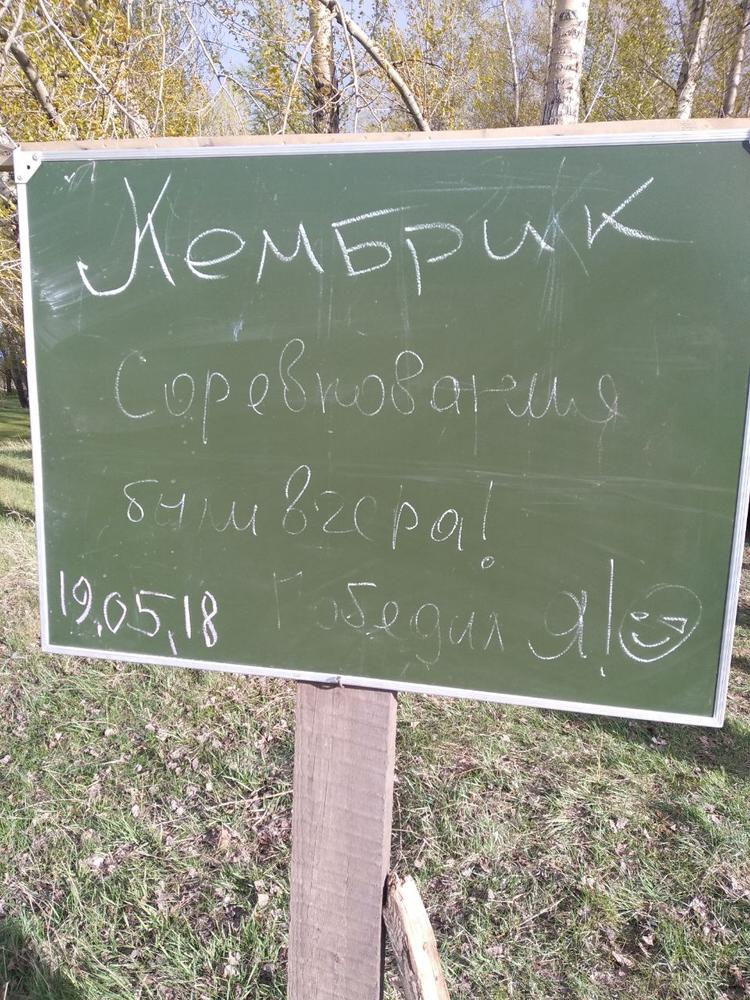 Кембрик
Соревнования
были вчера!
19.05.18 Победил Я!